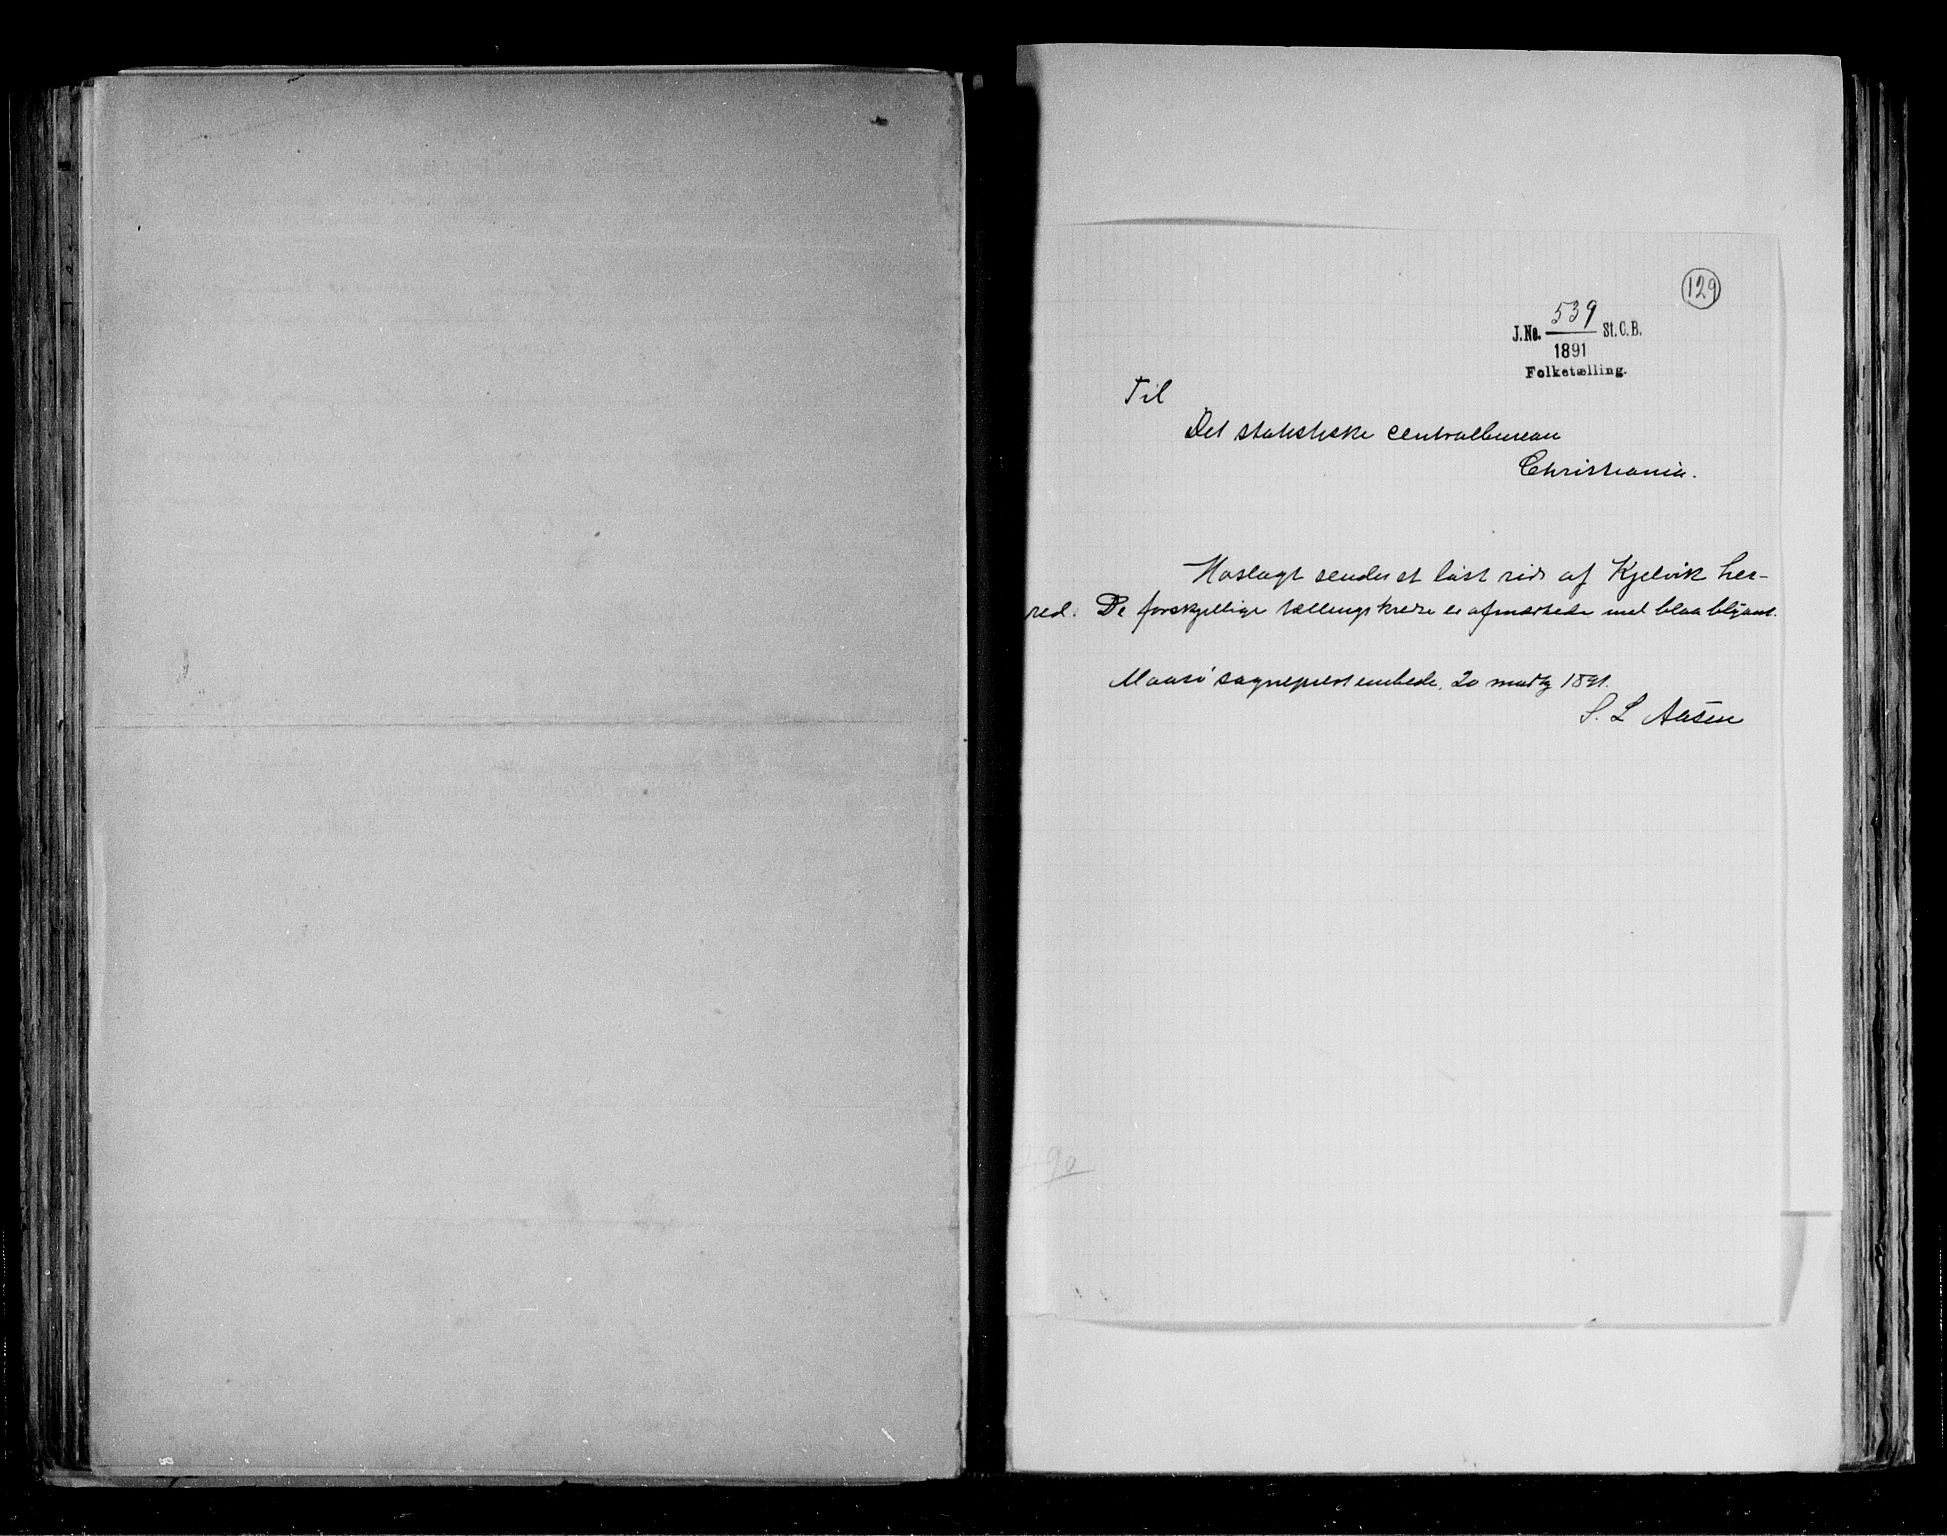 129
539
J.No. St.C.B.
1891
Folketælling.
Til
Det statistiske centralbureau
Christiania.
Hoslagt sendes et løst rids af Kjelvik her-
red. De forskjellige tællingskredse er afmærkede med blaa blyant.
Maasø sogneprestembede, 20 1891.
S. L Aasen
90